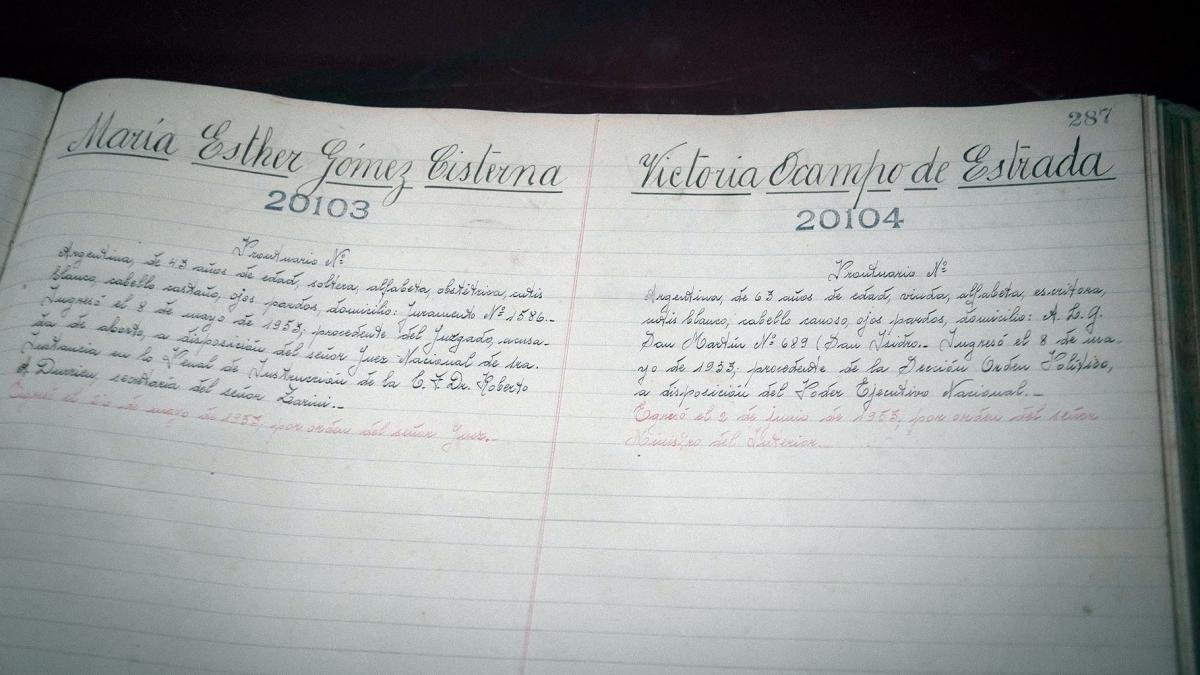 287
María Esther Gómez Cisterna
20103
Prontuario Nº
Argentina, de 43 años de edad, soltera, alfabeta, obstétrica, cutis
blanco, cabello castaño, ojos pardos, domicilio: Juramento Nº 1586.-
Ingresó el 8 de mayo de 1953; procedente del Juzgado, acusa-
da de aborto, a disposición del señor Juez Nacional de 1ra.
Instancia en lo Penal de Instrucción de la C. F. Dr. Roberto
A. Durrieu, secretaría del señor
Egresó el de mayo de 1953, por orden del señor Juez.-
Victoria Ocampo de Estrada
20104
Prontuario Nº
Argentina, de 63 años de edad, viuda, alfabeta, escritora,
cutis blanco, cabello canoso, ojos pardos, domicilio: A. D. G.
San Martín Nº 689 (San Isidro.- Ingresó el 8 de ma-
yo de 1953; procedente de la Sección Orden Político,
a disposición del Poder Ejecutivo Nacional.-
Egresó el 2 de junio de 1953, por orden del señor
Ministro del Interior.-